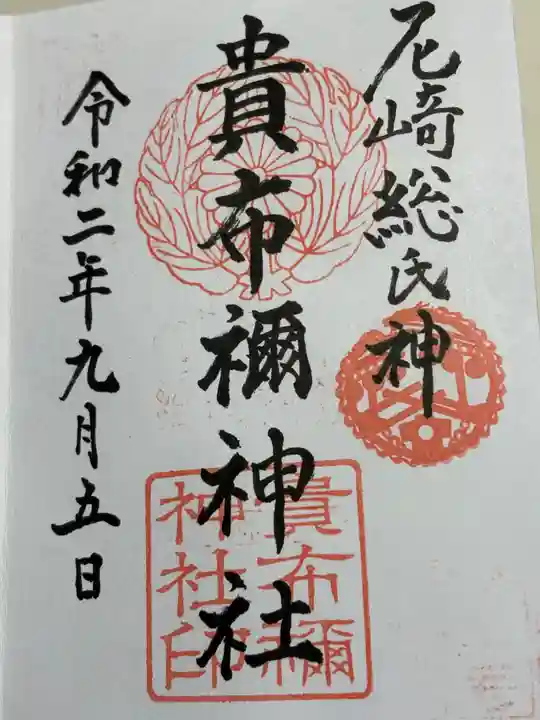 尼崎総氏神
貴布禰神社
貴布禰神社印
令和二年九月五日